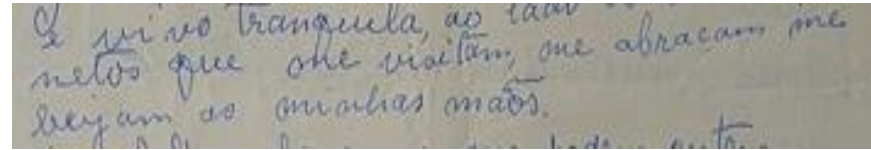 E vivo tranquila, ao lado
netos que me visitam, me abraçam, me
beijam as minhas mãos.
podem